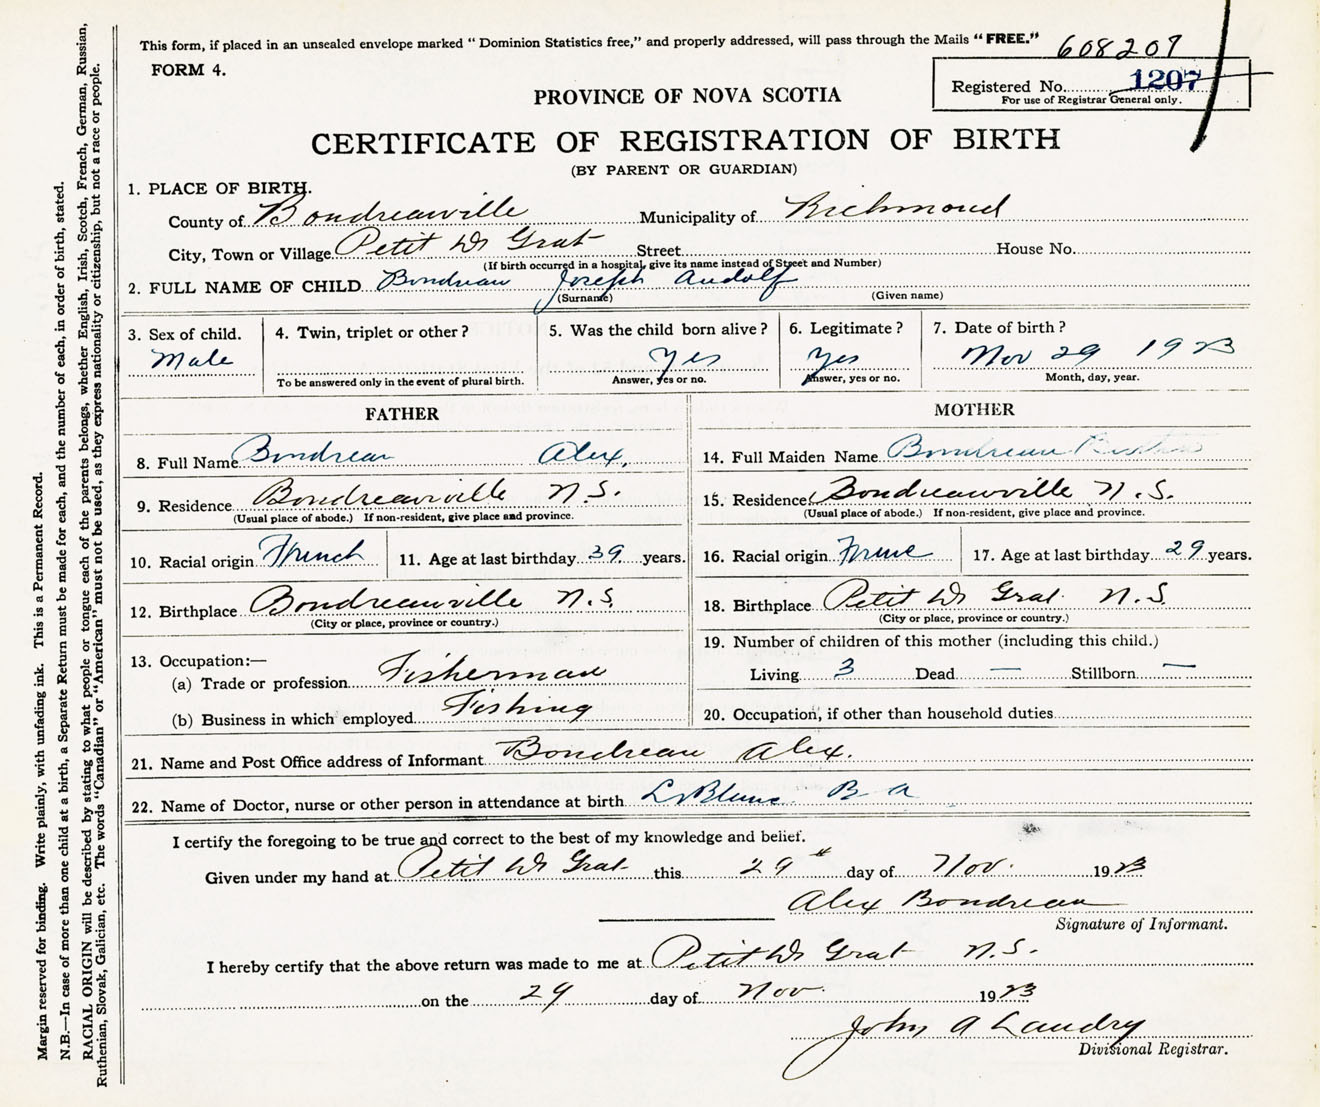 This form, if placed in an unsealed envelope marked "Dominion Statistics free," and properly addressed, will pass through the Mails "FREE."
608207
FORM 4.
Registered No. 1207
For use of Registrar General only.
PROVINCE OF NOVA SCOTIA
CERTIFICATE OF REGISTRATION OF BIRTH
(BY PARENT OR GUARDIAN)
1. PLACE OF BIRTH.
County of Boudreauville Municipality of Richmond
City, Town or Village Petit De Grat Street House No.
(If birth occurred in a hospital, give its name instead of Street and Number)
2. FULL NAME OF CHILD Boudreau Joseph Audolf
(Surname) (Given name)
3. Sex of child. Male
4. Twin, triplet or other?
To be answered only in the event of plural birth.
5. Was the child born alive? Yes
Answer, yes or no.
6. Legitimate? Yes
Answer, yes or no.
7. Date of birth? Nov 29 1923
Month, day, year.
FATHER
8. Full Name Boudreau Alex,
9. Residence Boudreauville N.S.
(Usual place of abode.) If non-resident, give place and province.
10. Racial origin French 11. Age at last birthday 39 years.
12. Birthplace Boudreauville N.S.
(City or place, province or country.)
13. Occupation:—
(a) Trade or profession Fisherman
(b) Business in which employed Fishing
MOTHER
14. Full Maiden Name Boudreau
15. Residence Boudreauville N.S.
(Usual place of abode.) If non-resident, give place and province.
16. Racial origin 17. Age at last birthday 29 years.
18. Birthplace Petit De Grat N.S.
(City or place, province or country.)
19. Number of children of this mother (including this child.)
Living 3 Dead — Stillborn —
20. Occupation, if other than household duties
21. Name and Post Office address of Informant Boudreau Alex.
22. Name of Doctor, nurse or other person in attendance at birth LeBlanc B A
I certify the foregoing to be true and correct to the best of my knowledge and belief.
Given under my hand at Petit De Grat this 29th day of Nov. 1923
Alex Boudreau
Signature of Informant.
I hereby certify that the above return was made to me at Petit De Grat N.S.
on the 29 day of Nov. 1923
John A Landry
Divisional Registrar.
Margin reserved for binding. Write plainly, with unfading ink. This is a Permanent Record.
N.B.—In case of more than one child at a birth, a Separate Return must be made for each, and the number of each, in order of birth, stated.
RACIAL ORIGIN will be described by stating to what people or tongue each of the parents belongs, whether English, Irish, Scotch, French, German, Russian,
Ruthenian, Slovak, Galician, etc. The words "Canadian" or "American" must not be used, as they express nationality or citizenship, but not a race or people.